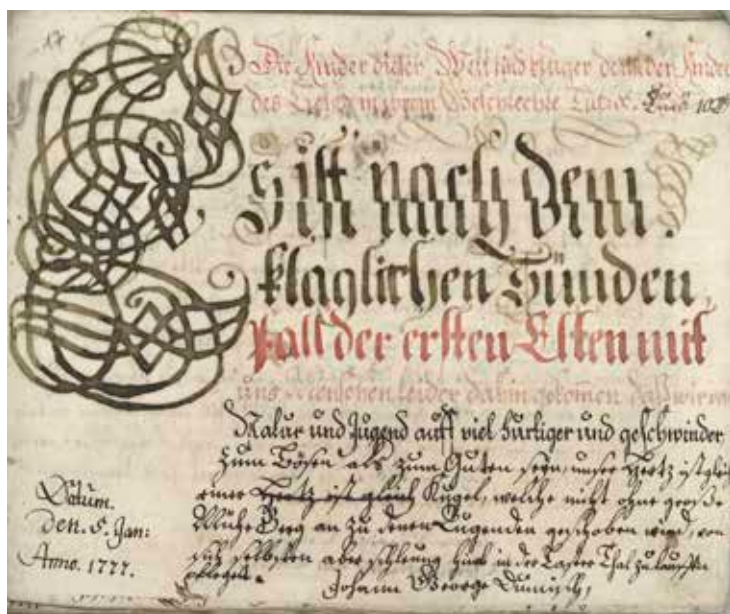 17
Die Kinder dieser Welt sind kluger denn der Kinder
des Geschlechte Luc. 10
ES ist nach dem
klaglichen Sünden,
Fall der ersten Elten mit
uns Menschen leider dahin gekomen, daß wir von
Natur und Jugend auff viel hurtiger und geschwinder
zum Bösen als zum Guten seyn, unser Hertz ist gleich
einer Hertz ist gleich Kugel, welche nicht ohne große
Mühe Berg an zu denen Tugenden geschoben wird, von
sich selbsten aber schleunig in der Laster Thal zu lauffen
pfleget.
Johann George Dünisch,
Datum.
den. 5. Jan:
Anno. 1777.